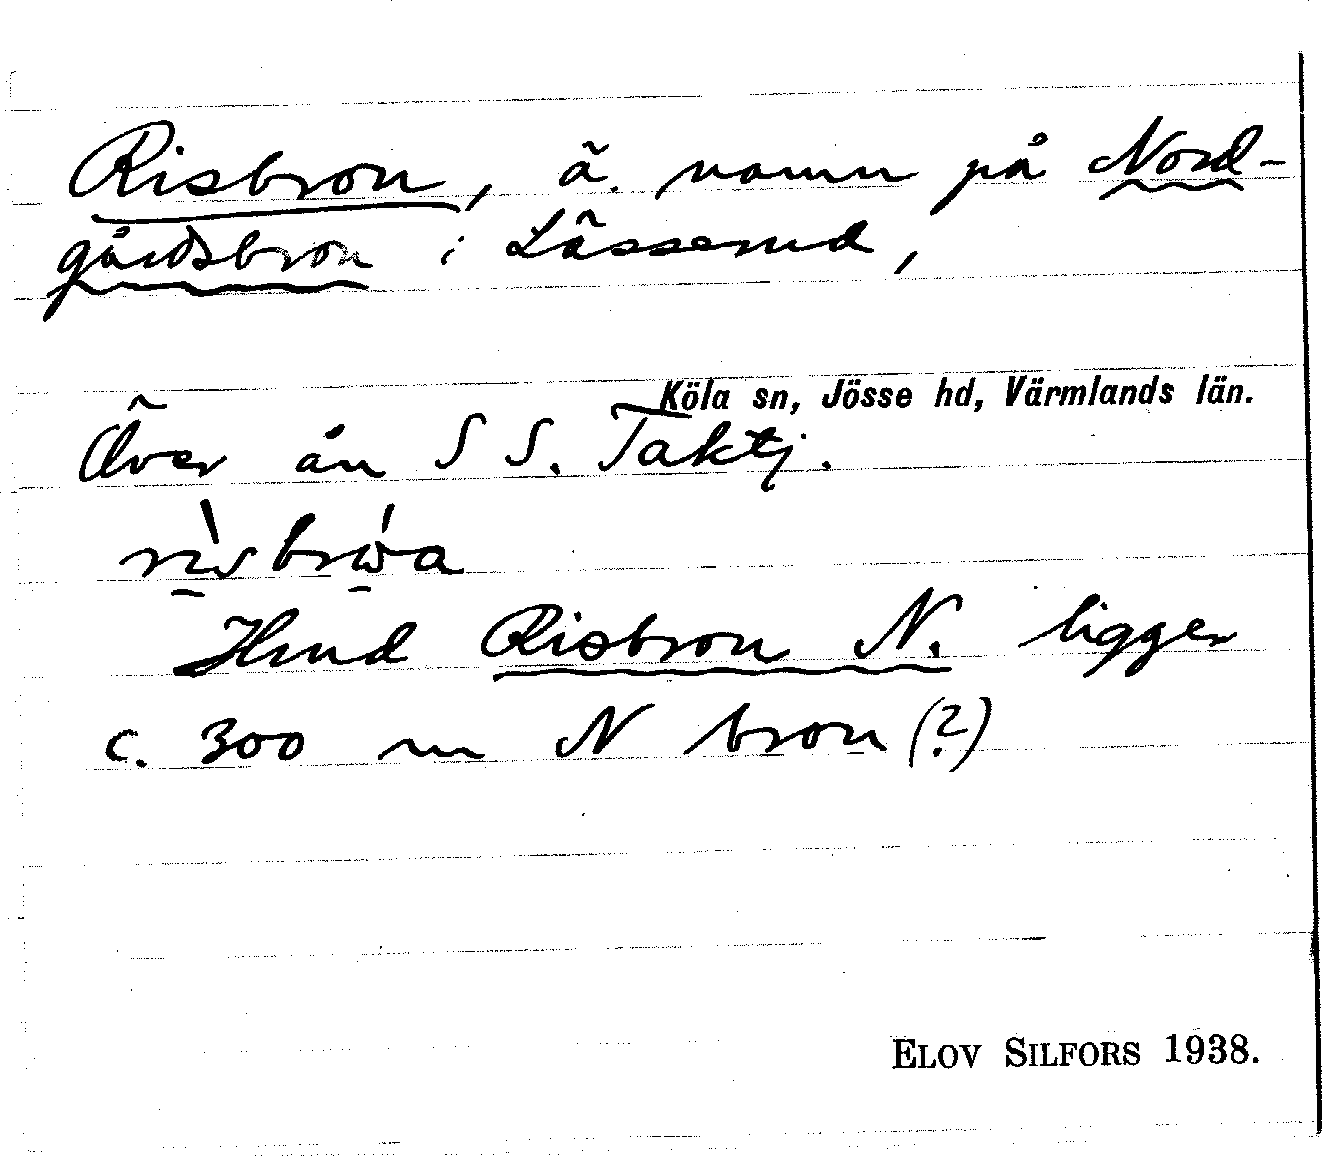 Risbron, ä. namn på Nord-
gårdsbron i Lässerud,
Köla sn, Jösse hd, Värmlands län.
Över ån S S. Taktj.
rìsbrὼa
Hmd Risbron N. ligger
c. 300 m N bron (?)
ELOV SILFORS 1938.